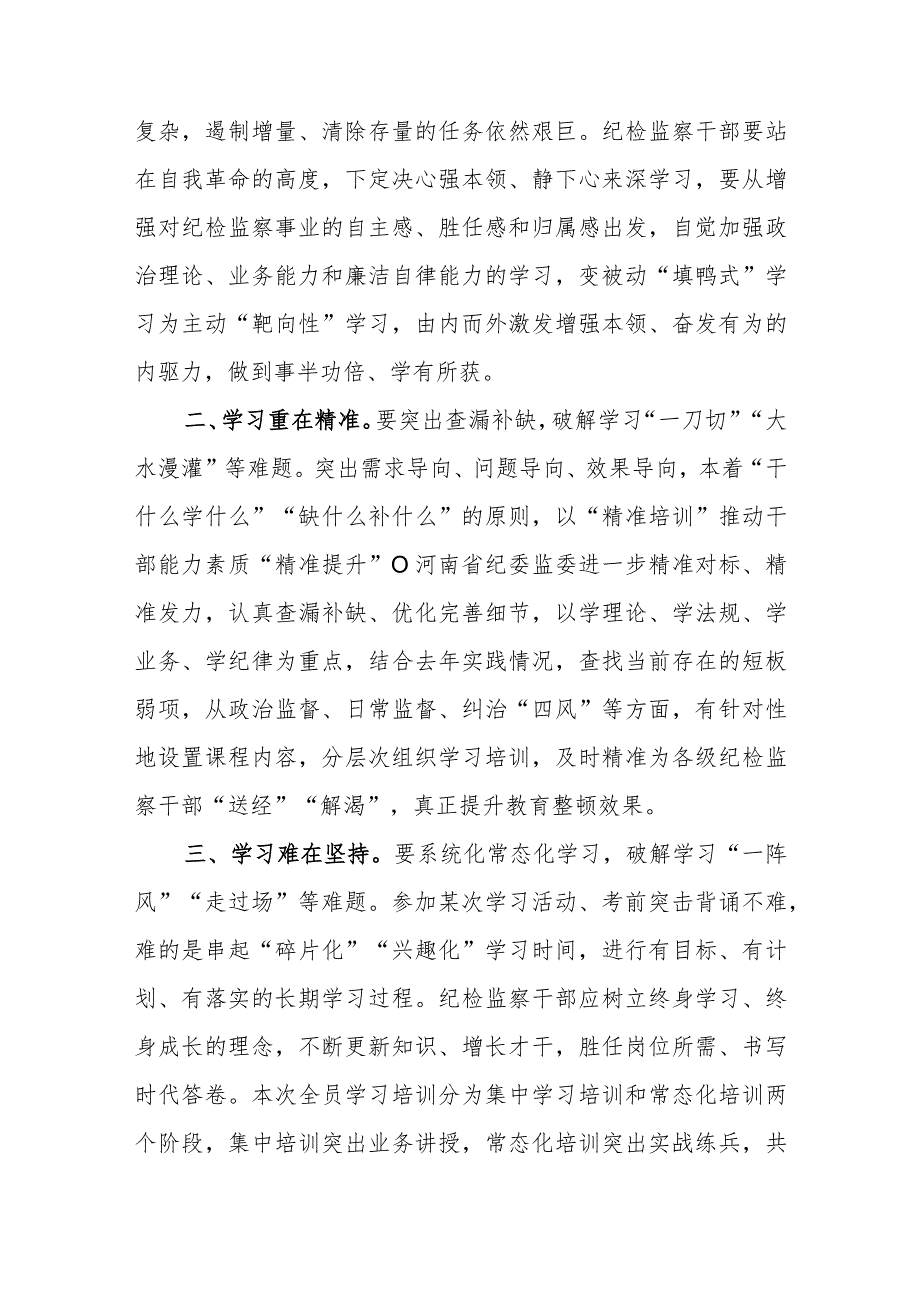 复杂，遏制增量、清除存量的任务依然艰巨。纪检监察干部要站
在自我革命的高度，下定决心强本领、静下心来深学习，要从增
强对纪检监察事业的自主感、胜任感和归属感出发，自觉加强政
治理论、业务能力和廉洁自律能力的学习，变被动“填鸭式”学
习为主动“靶向性”学习，由内而外激发增强本领、奋发有为的
内驱力，做到事半功倍、学有所获。
二、学习重在精准。要突出查漏补缺，破解学习“一刀切”“大
水漫灌”等难题。突出需求导向、问题导向、效果导向，本着“干
什么学什么”“缺什么补什么”的原则，以“精准培训”推动干
部能力素质“精准提升”O河南省纪委监委进一步精准对标、精
准发力，认真查漏补缺、优化完善细节，以学理论、学法规、学
业务、学纪律为重点，结合去年实践情况，查找当前存在的短板
弱项，从政治监督、日常监督、纠治“四风”等方面，有针对性
地设置课程内容，分层次组织学习培训，及时精准为各级纪检监
察干部“送经”“解渴”，真正提升教育整顿效果。
三、学习难在坚持。要系统化常态化学习，破解学习“一阵
风”“走过场”等难题。参加某次学习活动、考前突击背诵不难，
难的是串起“碎片化”“兴趣化”学习时间，进行有目标、有计
划、有落实的长期学习过程。纪检监察干部应树立终身学习、终
身成长的理念，不断更新知识、增长才干，胜任岗位所需、书写
时代答卷。本次全员学习培训分为集中学习培训和常态化培训两
个阶段，集中培训突出业务讲授，常态化培训突出实战练兵，共